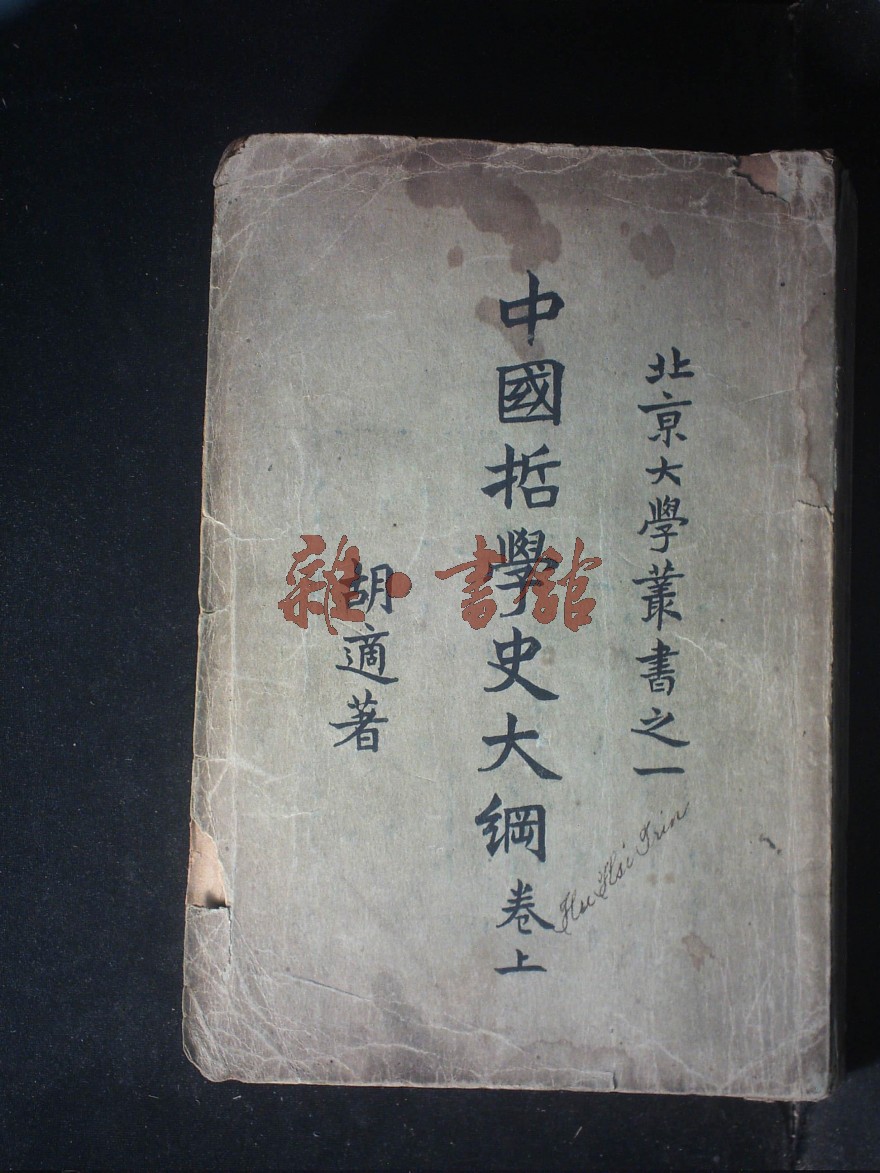 北京大學叢書之一
中國哲學史大綱 卷上
胡適著
Hsu Hsi Trin
雜·書館